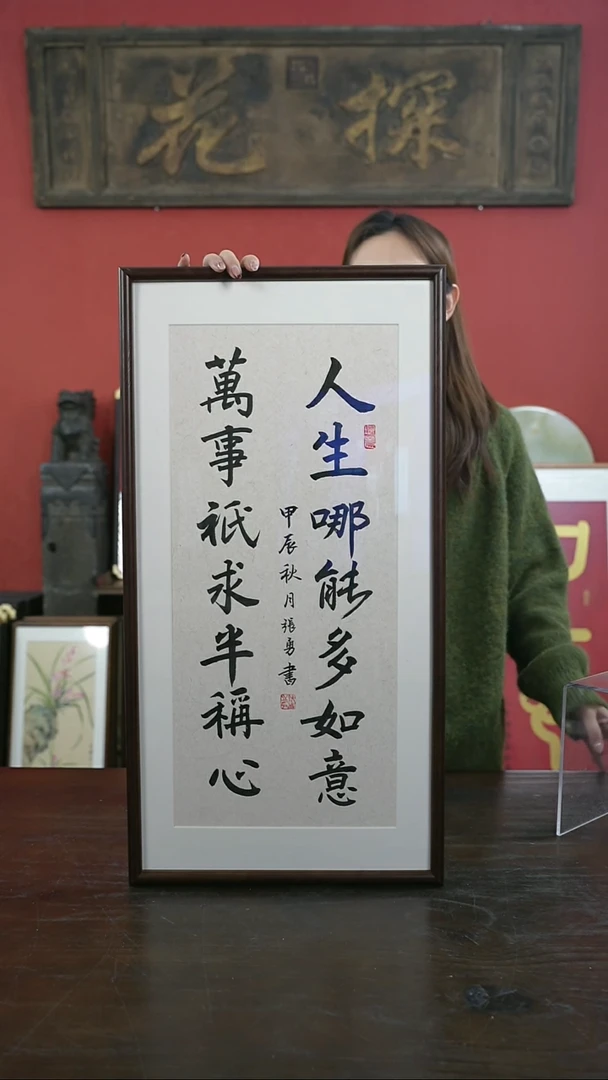 探花
人生哪能多如意
萬事祇求半稱心
甲辰秋月張勇書